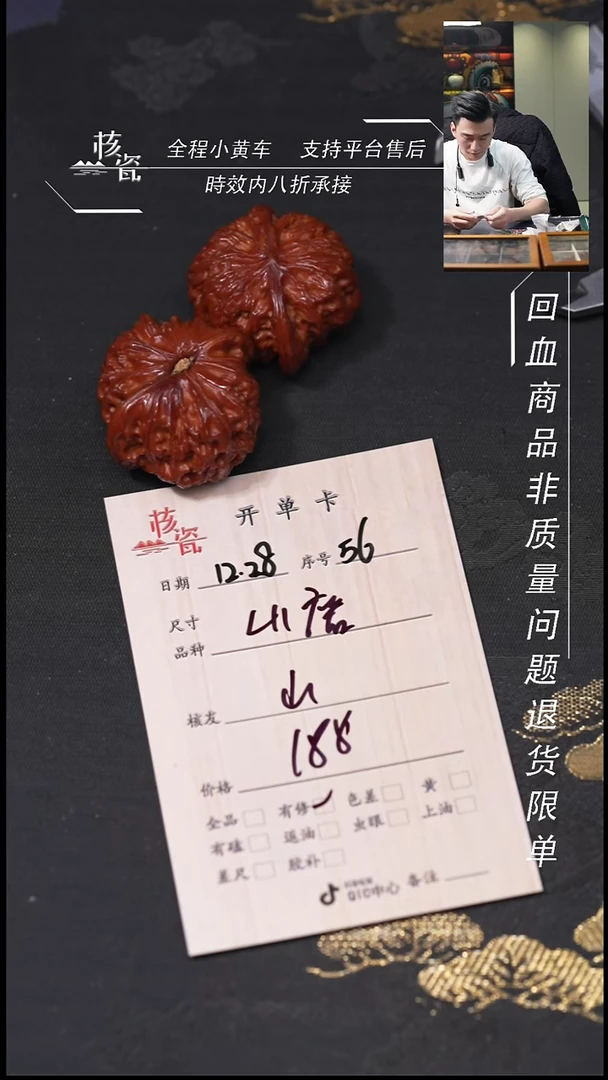 核瓷
全程小黄车 支持平台售后
時效内八折承接
回血商品非质量问题退货限单
核瓷 开单卡
日期 12.28 序号 56
尺寸
品种
核发 山
价格 188
全品 有修 色差 黄
有磕 返油 虫眼 上油
差尺 胶补
QIC中心 备注